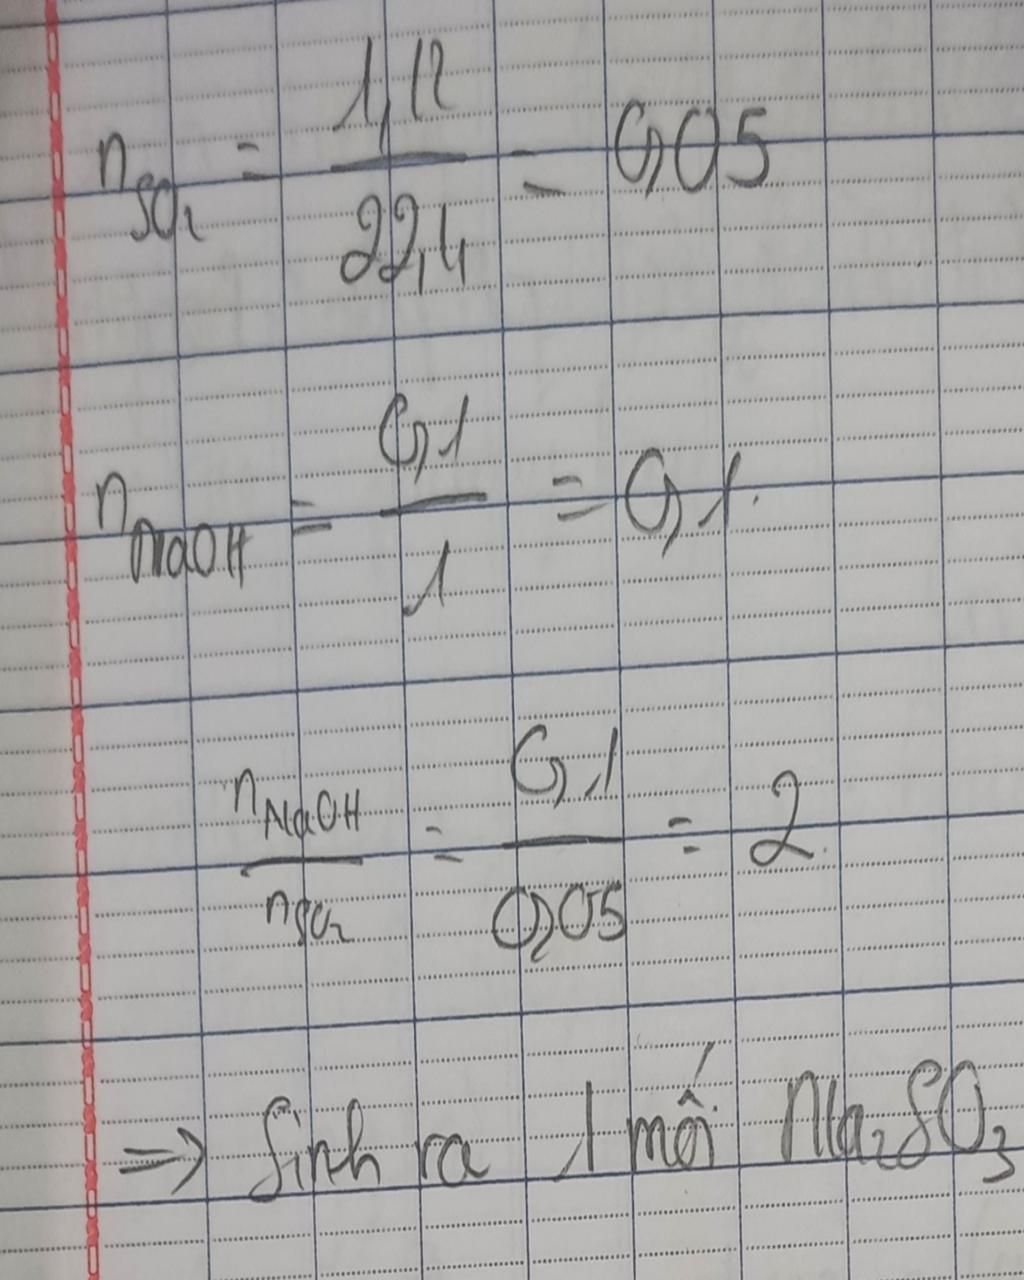 n_SO₂ = 1,12 / 22,4 = 0,05
n_NaOH = 0,1 / 1 = 0,1.
n_NaOH / n_SO₂ = 0,1 / 0,05 = 2.
=> Sinh ra 1 muối Na₂SO₃